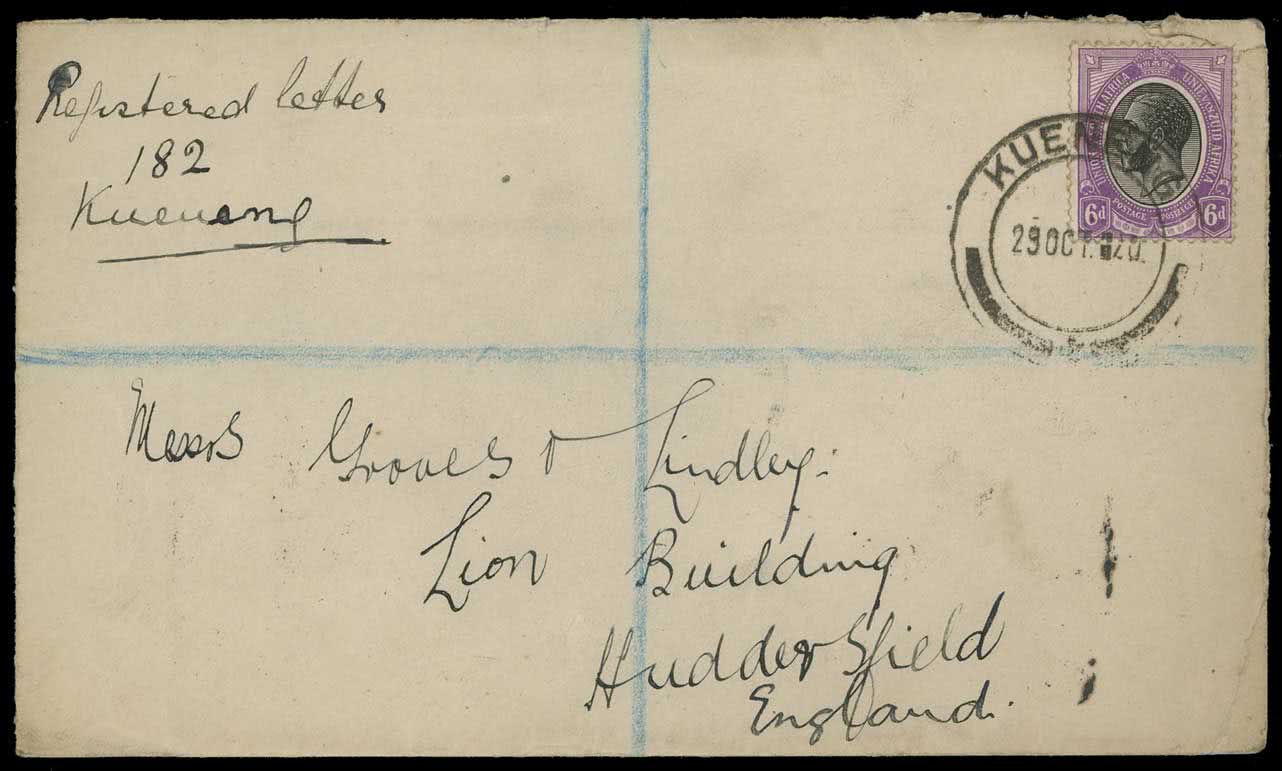 Registered letter
182
Kueneng
UNION OF SOUTH AFRICA UNIE VAN ZUID AFRIKA
POSTAGE POSTZEGEL
6d 6d
KUENENG
29 OCT. 20.
Messrs Groves & Lindley.
Lion Building
Huddersfield
England.